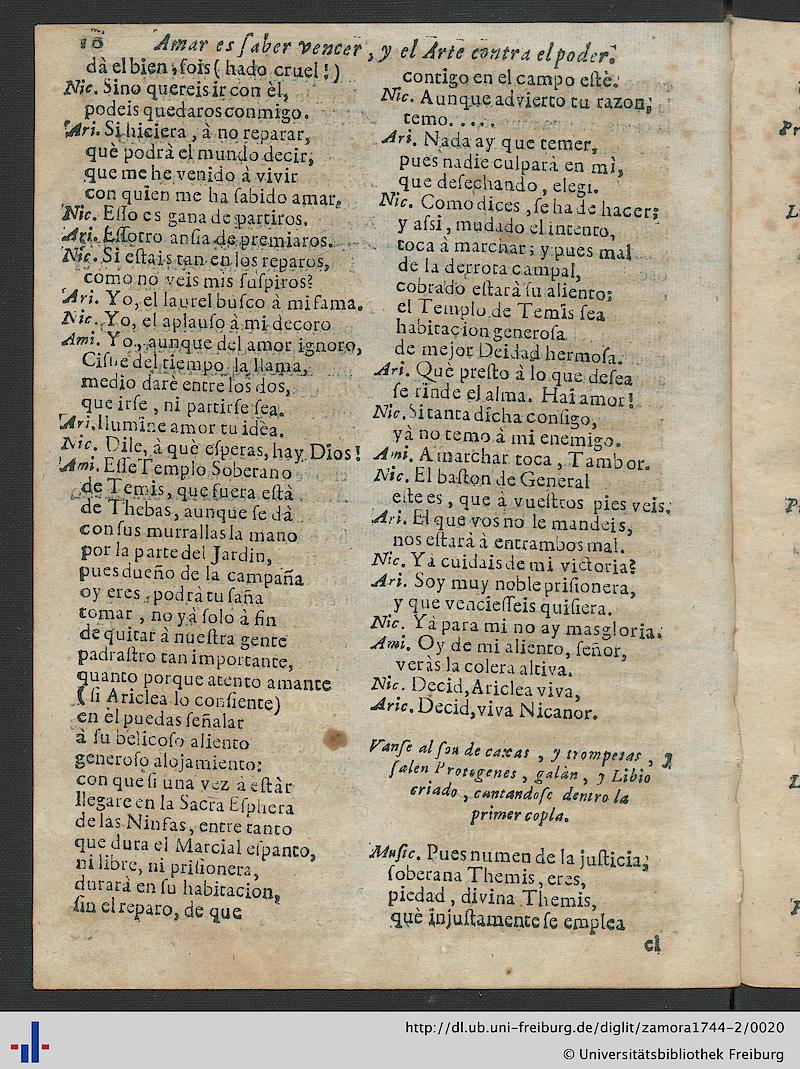 10 Amar es ſaber vencer, y el Arte contra el poder.
dà el bien, ſois ( hado cruel! )
Nic. Sino quereis ir con èl,
podeis quedaros conmigo.
Ari. Si hiciera, à no reparar,
què podrà el mundo decir,
que me he venido à vivir
con quien me ha ſabido amar.
Nic. Eſſo es gana de partiros.
Ari. Eſſotro anſia de premiaros.
Nic. Si eſtais tan en los reparos,
como no veis mis ſuſpiros?
Ari. Yo, el laurel buſco à mi fama.
Nic. Yo, el aplauſo à mi decoro
Ami. Yo, aunque del amor ignoro,
Ciſne del tiempo la llama,
medio darè entre los dos,
que irſe, ni partirſe ſea.
Ari. Ilumine amor tu idèa.
Nic. Dile, à què eſperas, hay Dios!
Ami. Eſſe Templo Soberano
de Temis, que fuera eſtà
de Thebas, aunque ſe dà
con ſus murrallas la mano
por la parte del Jardin,
pues dueño de la campaña
oy eres, podrà tu ſaña
tomar, no yà ſolo à fin
de quitar à nueſtra gente
padraſtro tan importante,
quanto porque atento amante
( ſi Ariclea lo conſiente)
en èl puedas ſeñalar
à ſu belicoſo aliento
generoſo alojamiento:
con que ſi una vez à eſtàr
llegare en la Sacra Eſphera
de las Ninfas, entre tanto
que dura el Marcial eſpanto,
ni libre, ni priſionera,
durarà en ſu habitacion,
ſin el reparo, de que
contigo en el campo eſtè.
Nic. Aunque advierto tu razon,
temo. . . . .
Ari. Nada ay que temer,
pues nadie culparà en mì,
que deſechando, elegì.
Nic. Como dices, ſe ha de hacer;
y aſsi, mudado el intento,
toca à marchar; y pues mal
de la derrota campal,
cobrado eſtarà ſu aliento;
el Templo de Temis ſea
habitacion generoſa
de mejor Deidad hermoſa.
Ari. Què preſto à lo que deſea
ſe rinde el alma. Hai amor!
Nic. Si tanta dicha conſigo,
yà no temo à mi enemigo.
Ami. A marchar toca, Tambor.
Nic. El baſton de General
eſte es, que à vueſtros pies veis.
Ari. El que vos no le mandeis,
nos eſtarà à entrambos mal.
Nic. Yà cuidais de mi victoria?
Ari. Soy muy noble priſionera,
y que vencieſſeis quiſiera.
Nic. Yà para mi no ay mas gloria.
Ami. Oy de mi aliento, ſeñor,
veràs la colera altiva.
Nic. Decid, Ariclea viva,
Aric. Decid, viva Nicanor.
Vanſe al ſon de caxas, y trompetas, y
ſalen Protogenes, galàn, y Libio
criado, cantandoſe dentro la
primer copla.
Muſic. Pues numen de la juſticia,
ſoberana Themis, eres,
piedad, divina Themis,
què injuſtamente ſe emplea
el
http://dl.ub.uni-freiburg.de/diglit/zamora1744-2/0020
© Universitätsbibliothek Freiburg